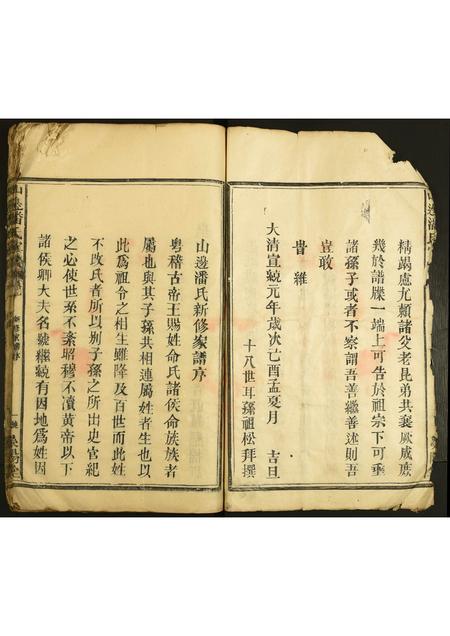 精竭慮尤賴諸父老昆弟共襄厥成庶
幾於譜牒一端上可告於祖宗下可垂
諸孫子或者不察謂吾善繼善述則吾
豈敢
昔維
大清宣統元年歲次己酉孟夏月 吉旦
十八世耳孫祖松拜撰
山邊潘氏新修家譜序
粵稽古帝王賜姓命氏諸侯命族族者
屬也與其子孫共相連屬姓者生也以
此為祖令之相生雖降及百世而此姓
不改氏者所以別子孫之所出史官紀
之必使世系不紊昭穆不瀆黃帝以下
諸侯卿大夫名號繼統有因地為姓因
山邊潘氏